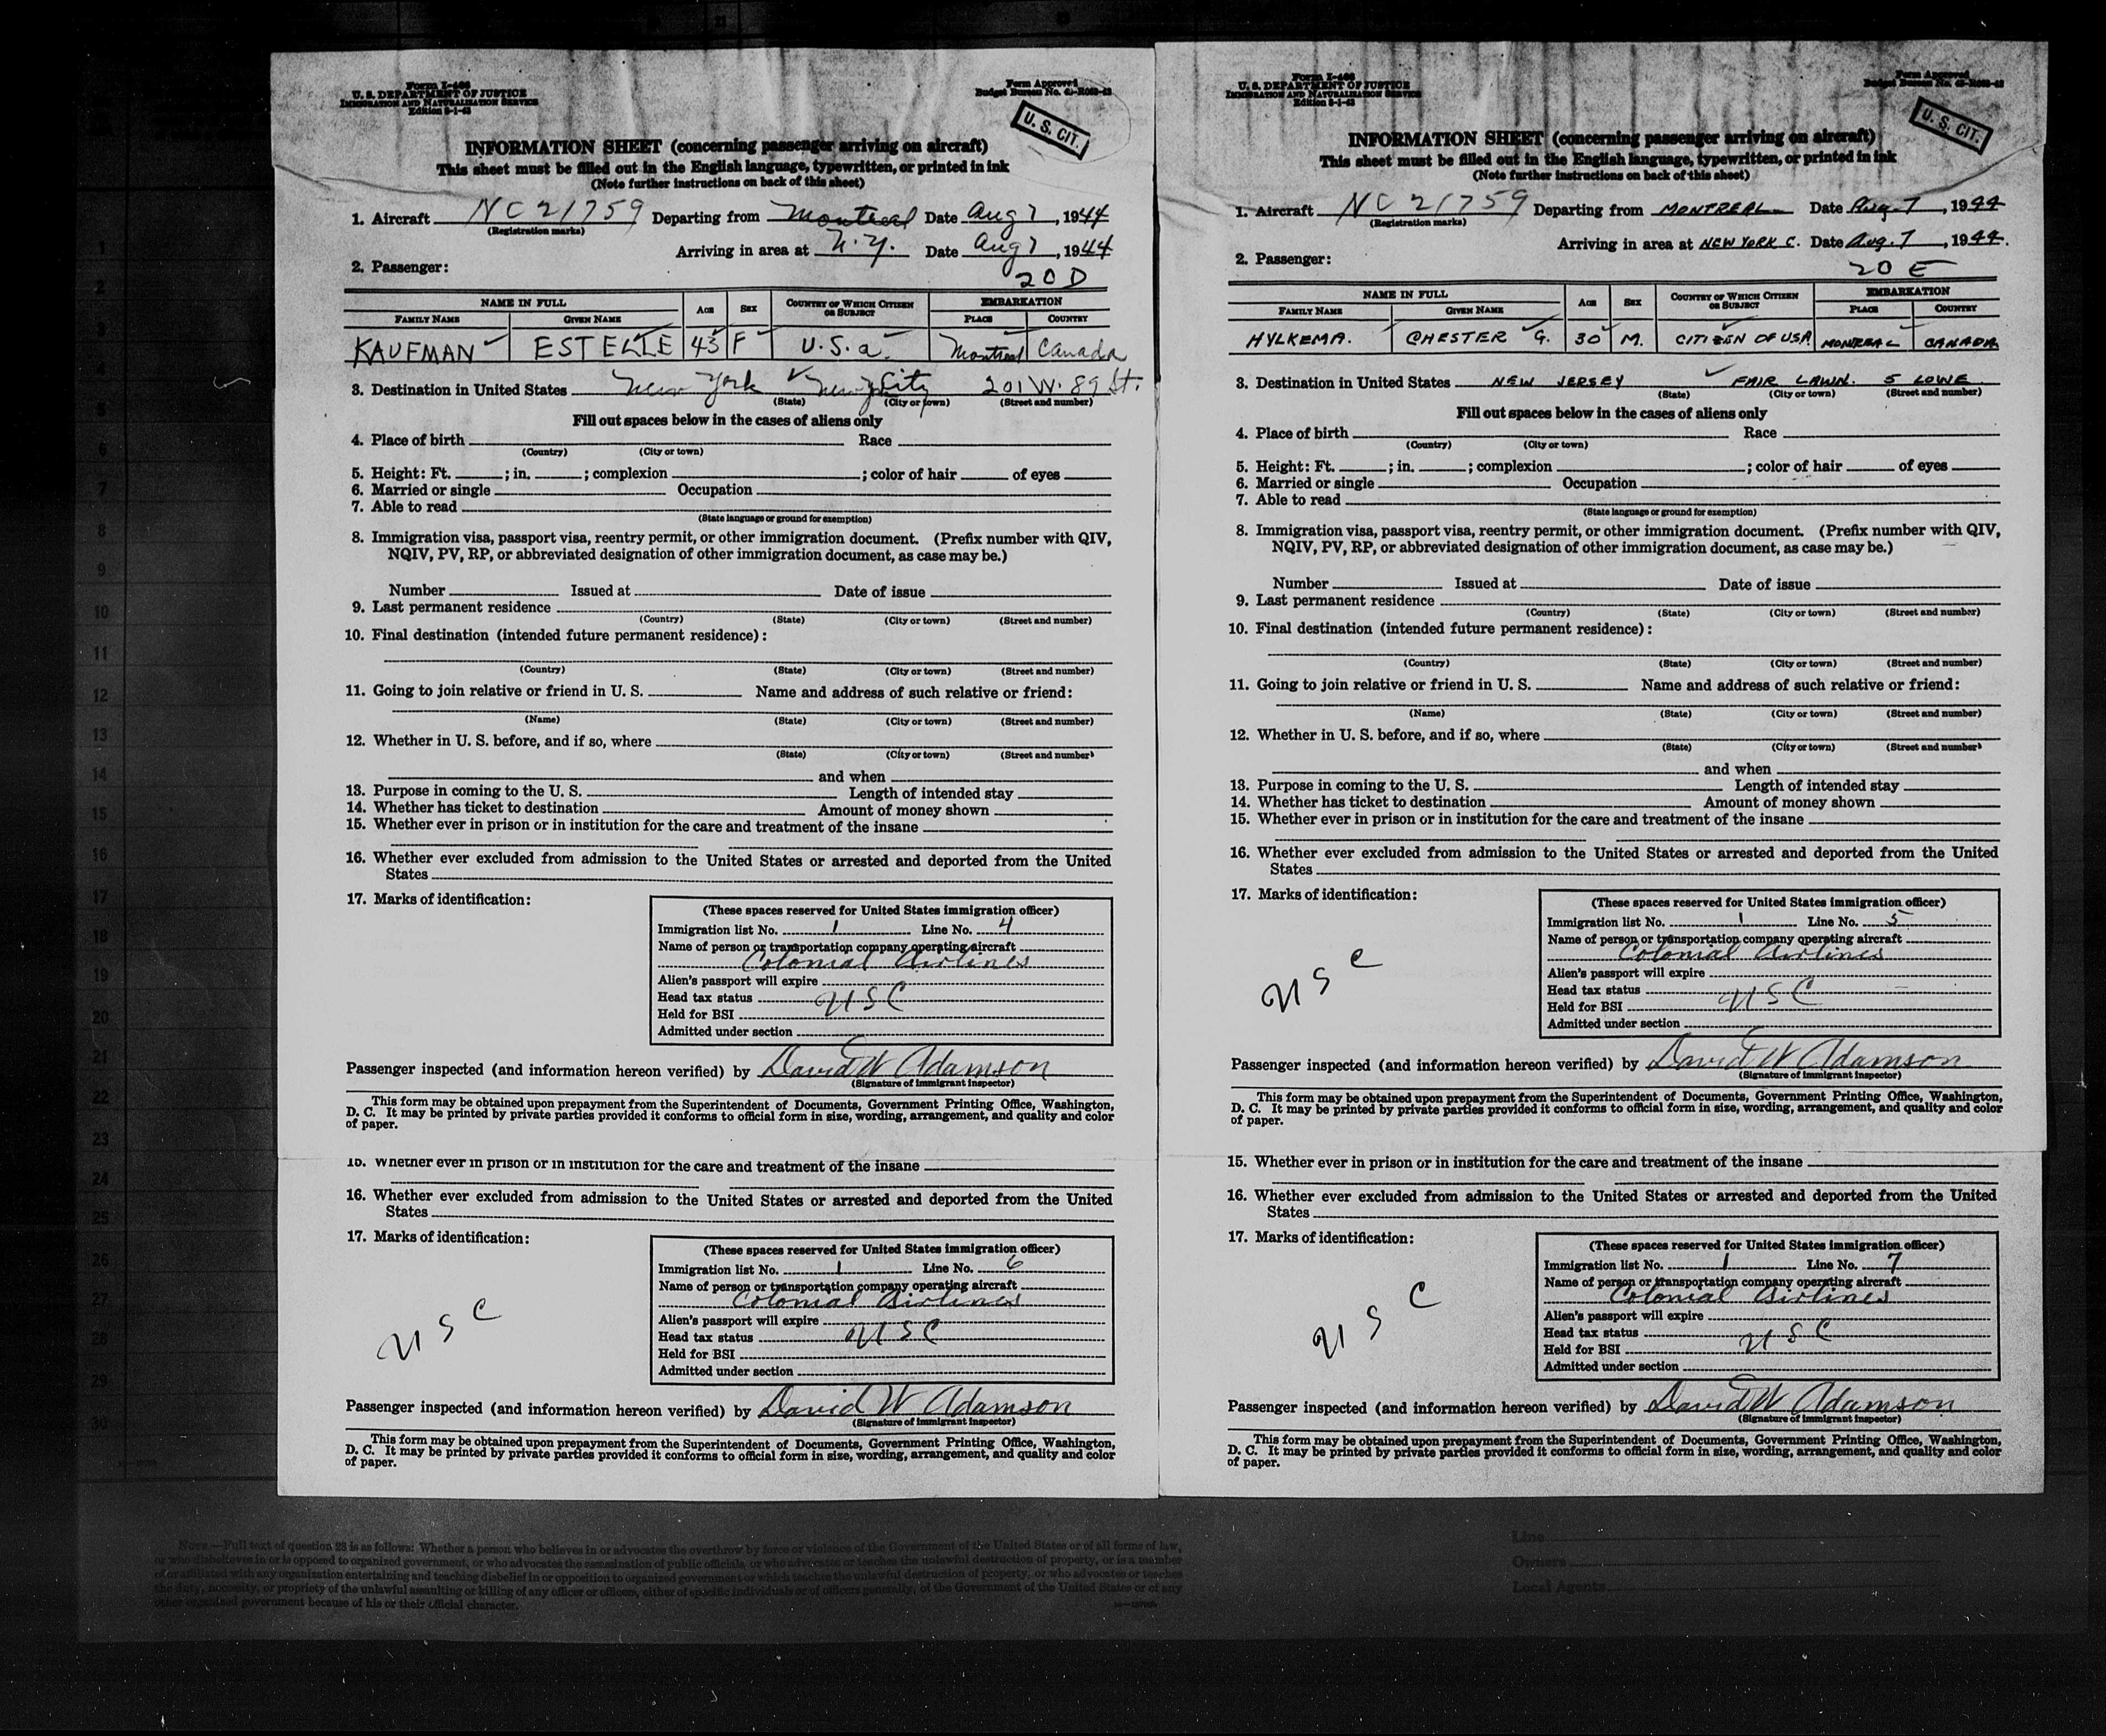 Form I-466
U. S. DEPARTMENT OF JUSTICE
IMMIGRATION AND NATURALIZATION SERVICE
Edition 3-1-43
Form Approved
Budget Bureau No.
U. S. CIT.
INFORMATION SHEET (concerning passenger arriving on aircraft)
This sheet must be filled out in the English language, typewritten, or printed in ink
(Note further instructions on back of this sheet)
1. Aircraft NC 21759 Departing from Montreal Date Aug 7, 1944
(Registration marks)
Arriving in area at N.Y. Date Aug 7, 1944
2. Passenger:
20 D
NAME IN FULL AGE SEX COUNTRY OF WHICH CITIZEN OR SUBJECT EMBARKATION
FAMILY NAME GIVEN NAME PLACE COUNTRY
KAUFMAN ESTELLE 43 F U.S.a. Montreal Canada
3. Destination in United States New York New York City 201 W. 89 St.
(State) (City or town) (Street and number)
Fill out spaces below in the cases of aliens only
4. Place of birth Race
(Country) (City or town)
5. Height: Ft. ; in. ; complexion ; color of hair of eyes
6. Married or single Occupation
7. Able to read
(State language or ground for exemption)
8. Immigration visa, passport visa, reentry permit, or other immigration document. (Prefix number with QIV,
NQIV, PV, RP, or abbreviated designation of other immigration document, as case may be.)
Number Issued at Date of issue
9. Last permanent residence
(Country) (State) (City or town) (Street and number)
10. Final destination (intended future permanent residence):
(Country) (State) (City or town) (Street and number)
11. Going to join relative or friend in U. S. Name and address of such relative or friend:
(Name) (State) (City or town) (Street and number)
12. Whether in U. S. before, and if so, where
(State) (City or town) (Street and number)
and when
13. Purpose in coming to the U. S. Length of intended stay
14. Whether has ticket to destination Amount of money shown
15. Whether ever in prison or in institution for the care and treatment of the insane
16. Whether ever excluded from admission to the United States or arrested and deported from the United
States
17. Marks of identification:
(These spaces reserved for United States immigration officer)
Immigration list No. 1 Line No. 4
Name of person or transportation company operating aircraft
Colonial Airlines
Alien's passport will expire
Head tax status USC
Held for BSI
Admitted under section
Passenger inspected (and information hereon verified) by David W Adamson
(Signature of immigrant inspector)
This form may be obtained upon prepayment from the Superintendent of Documents, Government Printing Office, Washington,
D. C. It may be printed by private parties provided it conforms to official form in size, wording, arrangement, and quality and color
of paper.
15. Whether ever in prison or in institution for the care and treatment of the insane
16. Whether ever excluded from admission to the United States or arrested and deported from the United
States
17. Marks of identification:
USC
(These spaces reserved for United States immigration officer)
Immigration list No. 1 Line No. 6
Name of person or transportation company operating aircraft
Colonial Airlines
Alien's passport will expire
Head tax status USC
Held for BSI
Admitted under section
Passenger inspected (and information hereon verified) by David W Adamson
(Signature of immigrant inspector)
This form may be obtained upon prepayment from the Superintendent of Documents, Government Printing Office, Washington,
D. C. It may be printed by private parties provided it conforms to official form in size, wording, arrangement, and quality and color
of paper.
Form I-466
U. S. DEPARTMENT OF JUSTICE
IMMIGRATION AND NATURALIZATION SERVICE
Edition 3-1-43
Form Approved
Budget Bureau No.
U. S. CIT.
INFORMATION SHEET (concerning passenger arriving on aircraft)
This sheet must be filled out in the English language, typewritten, or printed in ink
(Note further instructions on back of this sheet)
1. Aircraft NC 21759 Departing from MONTREAL Date Aug. 7, 1944
(Registration marks)
Arriving in area at NEW YORK C. Date Aug. 7, 1944.
2. Passenger:
20 E
NAME IN FULL AGE SEX COUNTRY OF WHICH CITIZEN OR SUBJECT EMBARKATION
FAMILY NAME GIVEN NAME PLACE COUNTRY
HYLKEMA. CHESTER G. 30 M. CITIZEN OF USA MONTREAL CANADA
3. Destination in United States NEW JERSEY FAIR LAWN. 5 LOWE
(State) (City or town) (Street and number)
Fill out spaces below in the cases of aliens only
4. Place of birth Race
(Country) (City or town)
5. Height: Ft. ; in. ; complexion ; color of hair of eyes
6. Married or single Occupation
7. Able to read
(State language or ground for exemption)
8. Immigration visa, passport visa, reentry permit, or other immigration document. (Prefix number with QIV,
NQIV, PV, RP, or abbreviated designation of other immigration document, as case may be.)
Number Issued at Date of issue
9. Last permanent residence
(Country) (State) (City or town) (Street and number)
10. Final destination (intended future permanent residence):
(Country) (State) (City or town) (Street and number)
11. Going to join relative or friend in U. S. Name and address of such relative or friend:
(Name) (State) (City or town) (Street and number)
12. Whether in U. S. before, and if so, where
(State) (City or town) (Street and number)
and when
13. Purpose in coming to the U. S. Length of intended stay
14. Whether has ticket to destination Amount of money shown
15. Whether ever in prison or in institution for the care and treatment of the insane
16. Whether ever excluded from admission to the United States or arrested and deported from the United
States
17. Marks of identification:
USC
(These spaces reserved for United States immigration officer)
Immigration list No. 1 Line No. 5
Name of person or transportation company operating aircraft
Colonial Airlines
Alien's passport will expire
Head tax status USC
Held for BSI
Admitted under section
Passenger inspected (and information hereon verified) by David W Adamson
(Signature of immigrant inspector)
This form may be obtained upon prepayment from the Superintendent of Documents, Government Printing Office, Washington,
D. C. It may be printed by private parties provided it conforms to official form in size, wording, arrangement, and quality and color
of paper.
15. Whether ever in prison or in institution for the care and treatment of the insane
16. Whether ever excluded from admission to the United States or arrested and deported from the United
States
17. Marks of identification:
USC
(These spaces reserved for United States immigration officer)
Immigration list No. 1 Line No. 7
Name of person or transportation company operating aircraft
Colonial Airlines
Alien's passport will expire
Head tax status USC
Held for BSI
Admitted under section
Passenger inspected (and information hereon verified) by David W Adamson
(Signature of immigrant inspector)
This form may be obtained upon prepayment from the Superintendent of Documents, Government Printing Office, Washington,
D. C. It may be printed by private parties provided it conforms to official form in size, wording, arrangement, and quality and color
of paper.
1
2
3
4
5
6
7
8
9
10
11
12
13
14
15
16
17
18
19
20
21
22
23
24
25
26
27
28
29
30
NOTE.—Full text of question 28 is as follows: Whether a person who believes in or advocates the overthrow by force or violence of the Government of the United States or of all forms of law,
or who disbelieves in or is opposed to organized government, or who advocates the assassination of public officials, or who advocates or teaches the unlawful destruction of property, or is a member
of or affiliated with any organization entertaining and teaching disbelief in or opposition to organized government or which teaches the unlawful destruction of property, or who advocates or teaches
the duty, necessity, or propriety of the unlawful assaulting or killing of any officer or officers, either of specific individuals or of officers generally, of the Government of the United States or of any
other organized government because of his or their official character.
Line
Owners
Local Agents